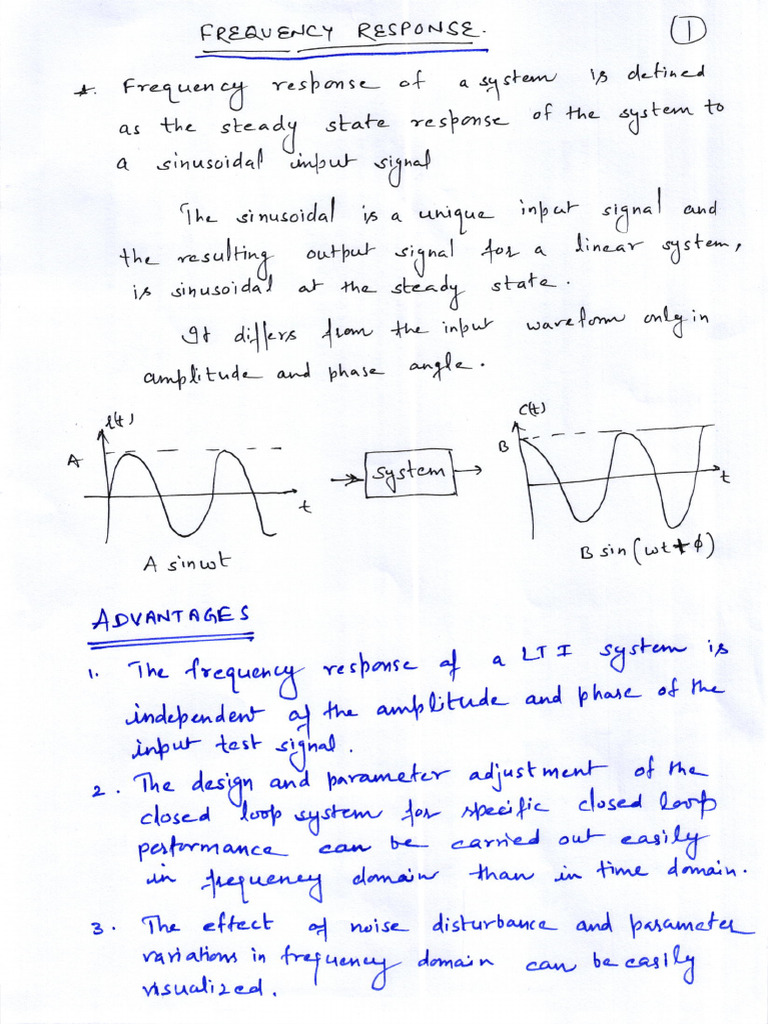 FREQUENCY RESPONSE.
1
*. Frequency response of a system is defined
as the steady state response of the system to
a sinusoidal input signal
The sinusoidal is a unique input signal and
the resulting output signal for a linear system,
is sinusoidal at the steady state.
It differs from the input waveform only in
amplitude and phase angle.
r(t)
A
t
A sinωt
system
C(t)
B
t
B sin(ωt+ϕ)
ADVANTAGES
1. The frequency response of a LTI system is
independent of the amplitude and phase of the
input test signal.
2. The design and parameter adjustment of the
closed loop system for specific closed loop
performance can be carried out easily
in frequency domain than in time domain.
3. The effect of noise disturbance and parameter
variations in frequency domain can be easily
visualized.